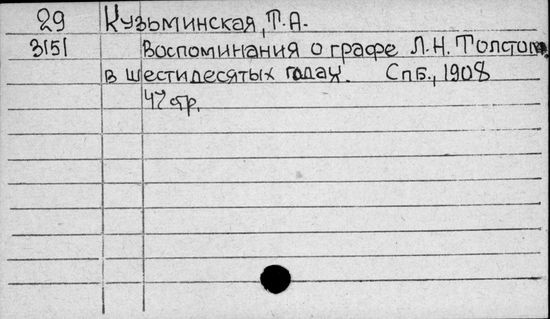 29 Кузьминская, Т.А.
3151 Воспоминания о графе Л.Н. Толстом
в шестидесятых годах. Спб., 1908
47 стр.